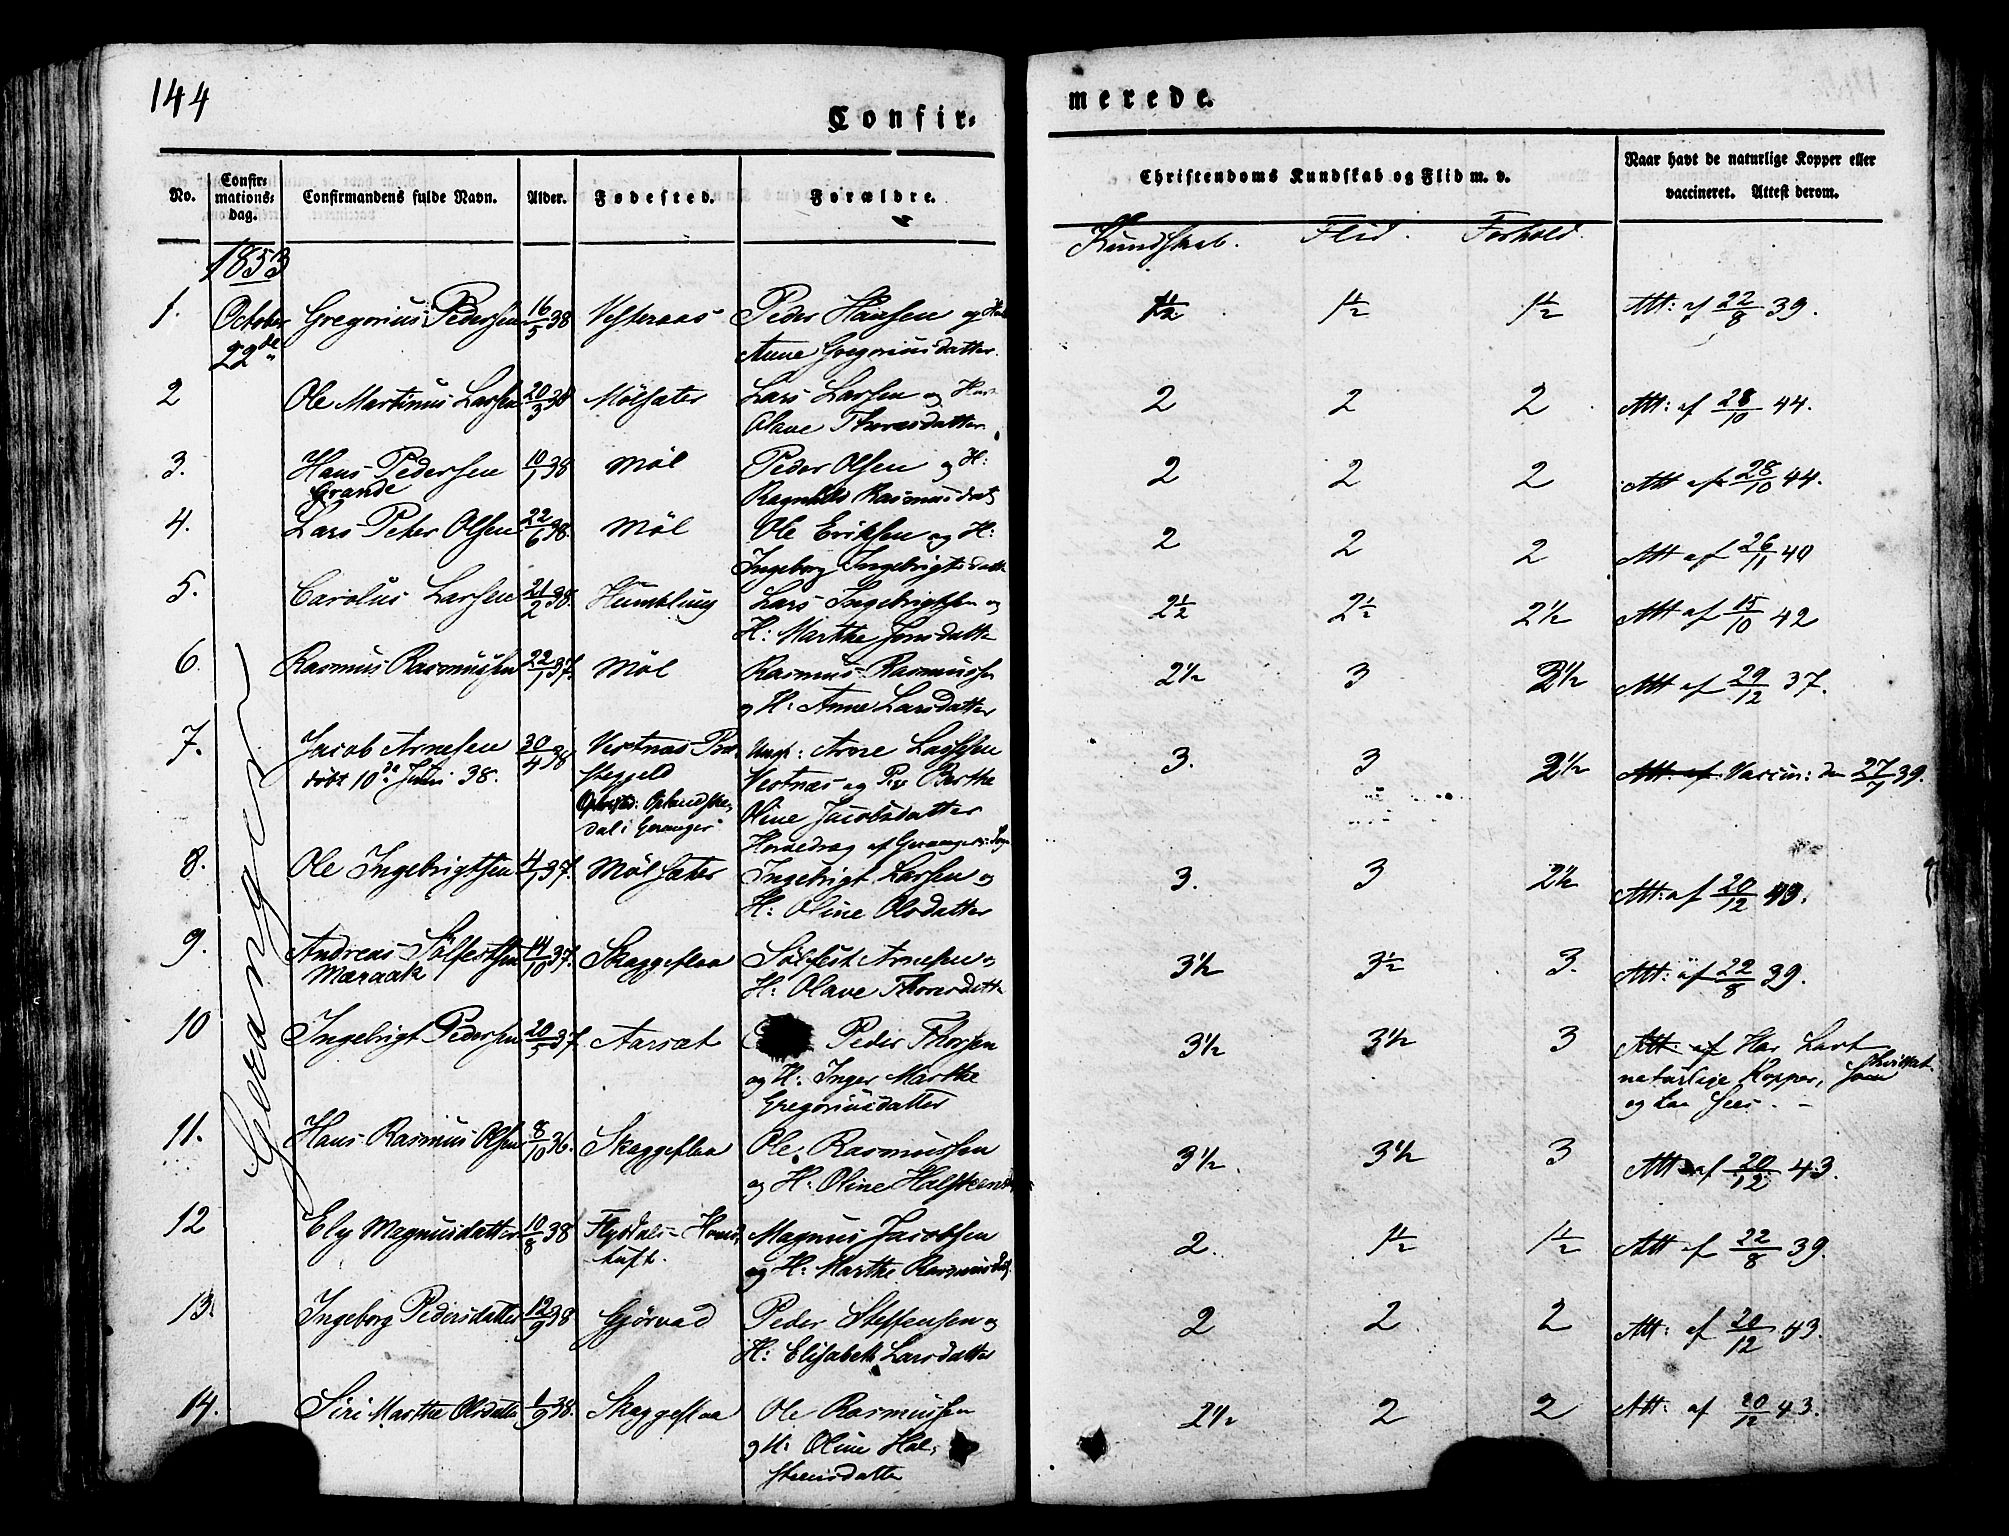 144
Confir=
merede.
No.
Confir=
mations=
dag.
Confirmandens fulde Navn.
Alder.
Fødested.
Forældre.
Christendoms Kundskab og Flid m. v.
Naar havt de naturlige Kopper eller
vaccineret. Attest derom.
Kundskab. Flid. Forhold.
1853
Geranger
1. October Gregorius Pedersen 16/5 38 Vesteraas Peder Hansen og 1½ 1½ 1½ Att: af 22/8 39.
22de Anne Gregoriusdatter.
2 Ole Martinus Larsen 20/3 38 Mølsæter Lars Larsen og 2 2 2 Att: af 28/10 44.
Olave Thoresdatter
3. Hans Pedersen 10/1 38 Møl Peder Olsen og H: 2 2 2 Att af 28/10 44.
Grande Ragnild Rasmusdat
4. Lars Peter Olsen 22/6 38. Møl Ole Eriksen og H: 2 2 2 Att af 26/11 40
Ingeborg Ingebrigtsdatt
5. Carolus Larsen 21/2 38. Humlung Lars Ingebrigtsen og 2½ 2½ 2½ Att af 15/10 42
H: Marthe Jonsdatte
6. Rasmus Rasmussen 22/1 37. Møl Rasmus Rasmussen 2½ 3 2½ Att af 29/12 37.
og H: Anne Larsdatter
7. Jacob Arnesen 30/4 38 Vestnæs Præ Ungk: Arne Larssen 3. 3 2½ Att: af Vaccin: den 27/7 39.
døbt 10de Juni 38. stegjeld Vestnæs og Pi: Berthe
Opholdsted: Oplendske Oline Jacobsdatter
dal i Geranger
8. Ole Ingebrigtsen 4/1 37. Møl sæter Ingebrigt Larsen og 3. 3 2½ Att: af 20/12 43.
H: Oline Olsdatter
9. Andreas Sølfestsen 14/10 37. Skaggeflaa Sølfest Arnesen og 3½ 3½ 3. Att: af 22/8 39.
Maraak H: Olave Thoresdatte
10 Ingebrigt Pedersen 20/5 37 Aarsæt Peder Thorsen 3½ 3½ 3 Att: af Har havt
og H: Inger Marthe naturlige Kopper,
Gregoriusdatter og kan sees.
11. Hans Rasmus Olsen 8/10 36. Skaggeflaa Ole Rasmussen 3½. 3½ 3 Att: af 20/12 43.
og H: Oline Halsteens
12 Ely Magnusdatter 10/8 38 Flydals-Hons Magnus Jacobsen 2. 1½ 1½ Att af 22/8 39.
tuft. og H: Marthe Rasmusdat
13. Ingeborg Pedersdatter 12/9 38 Gjørvad Peder Steffensen og 2 2 2 Att: af 20/12 43.
H: Elisabeth Larsdatter
14. Siri Marthe Olsdatter 1/9 38. Skaggeflaa Ole Rasmussen 2½ 2 2 Att: af 20/12 43.
og H: Oline Hal=
steensdatte